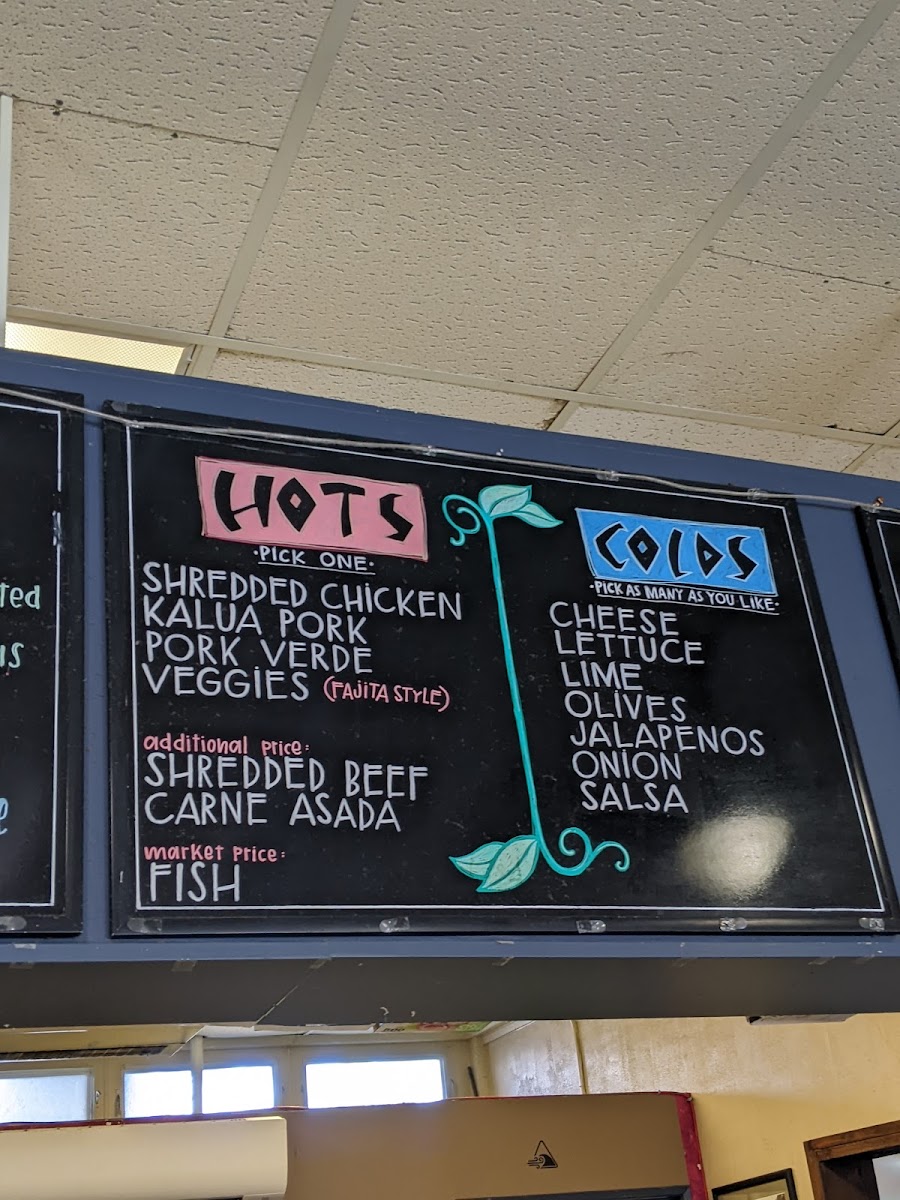 HOTS
·PICK ONE·
SHREDDED CHICKEN
KALUA PORK
PORK VERDE
VEGGIES (FAJITA STYLE)
additional price:
SHREDDED BEEF
CARNE ASADA
market price:
FISH
COLDS
·PICK AS MANY AS YOU LIKE·
CHEESE
LETTUCE
LIME
OLIVES
JALAPENOS
ONION
SALSA